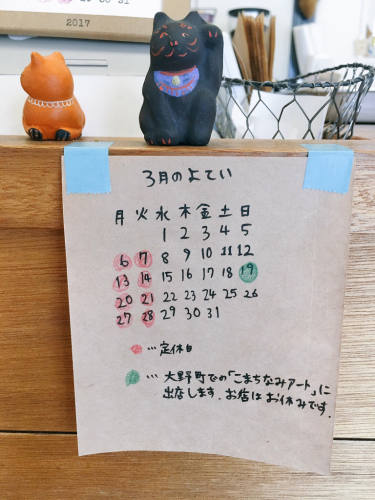 2017
3月のよてい
月 火 水 木 金 土 日
1 2 3 4 5
6 7 8 9 10 11 12
13 14 15 16 17 18 19
20 21 22 23 24 25 26
27 28 29 30 31
…定休日
… 大野町での「こまちなみアート」に
出店します。お店はお休みです。